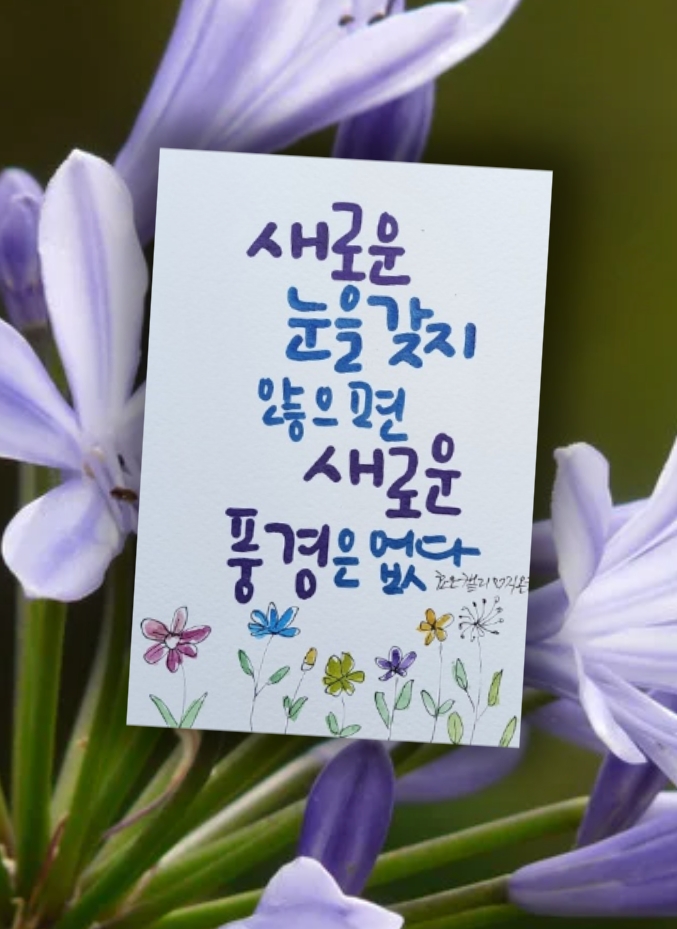 새로운
눈을 갖지
않으면
새로운
풍경은 없다